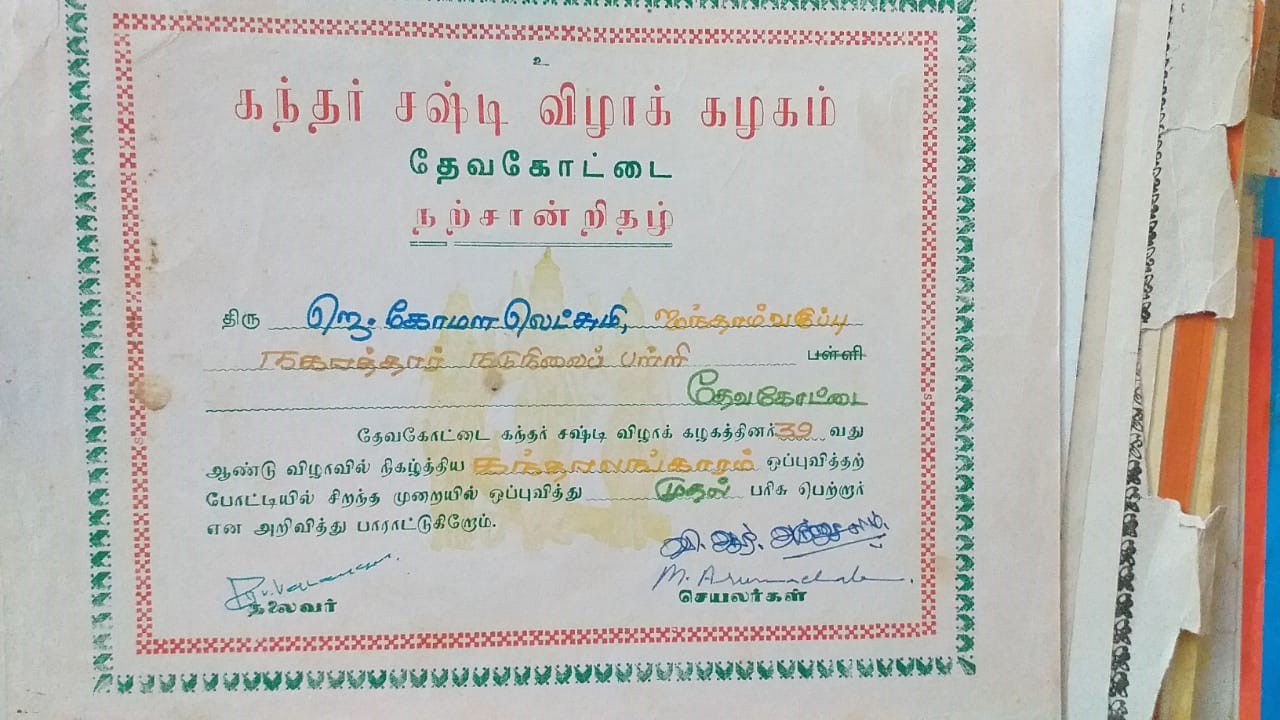 உ
கந்தர் சஷ்டி விழாக் கழகம்
தேவகோட்டை
நற்சான்றிதழ்
திரு ஜெ. கோமள லெட்சுமி, ஐந்தாம்வகுப்பு
நகரத்தார் நடுநிலைப் பள்ளி பள்ளி
தேவகோட்டை
தேவகோட்டை கந்தர் சஷ்டி விழாக் கழகத்தினர் 39 வது
ஆண்டு விழாவில் நிகழ்த்திய கந்தரலங்காரம் ஒப்புவித்தற்
போட்டியில் சிறந்த முறையில் ஒப்புவித்து முதல் பரிசு பெற்றார்
என அறிவித்து பாராட்டுகிறோம்.
M. Arunachalam
தலைவர் செயலர்கள்